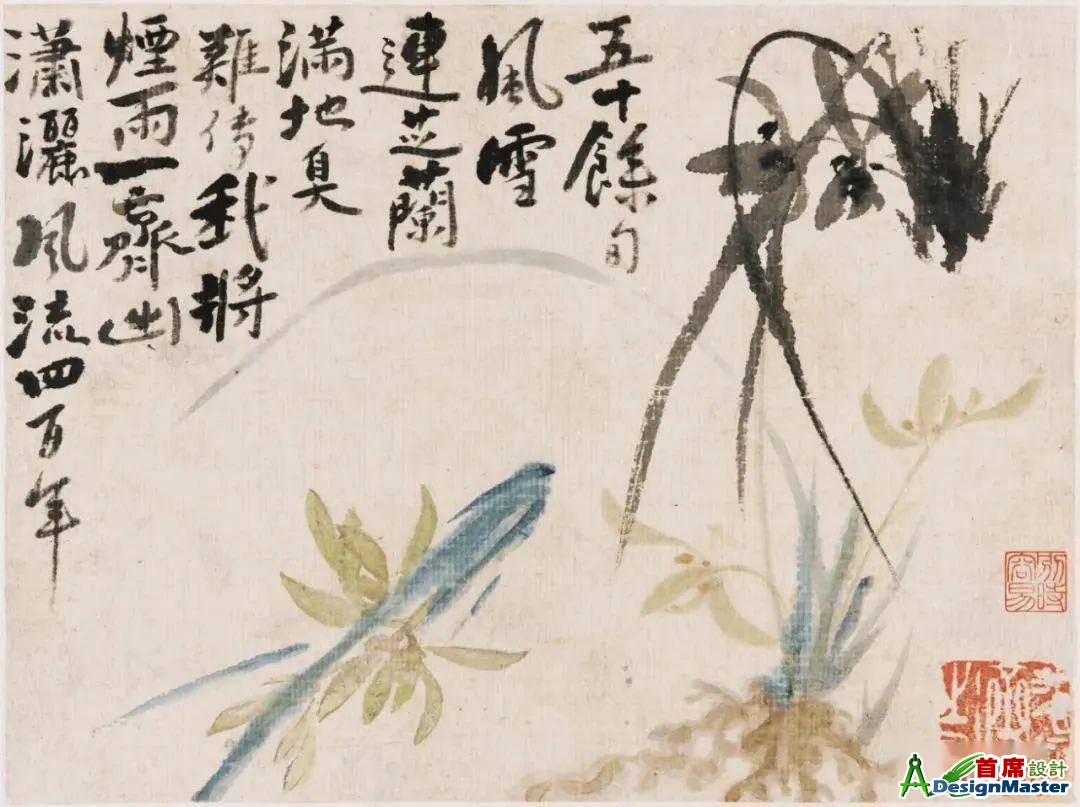 五十餘旬
風雪
連芝蘭
滿地臭
難傳我將
煙雨一齊出
瀟灑風流四百年
別時
容易
首席設計
ADesignMaster